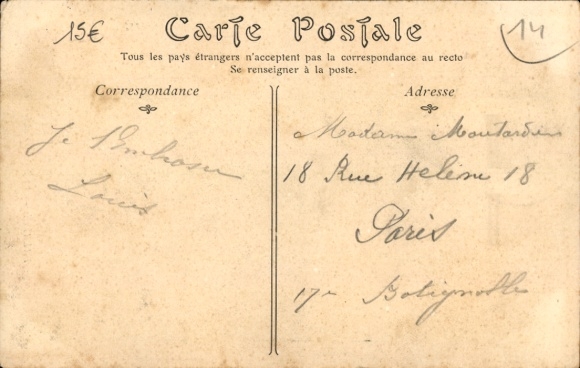 15€
14
Carte Postale
Tous les pays étrangers n'acceptent pas la correspondance au recto
Se renseigner à la poste.
Correspondance
Adresse
Je t'embrasse
Louis
Madame Moutardier
18 Rue Helène 18
Paris
17e Batignolle